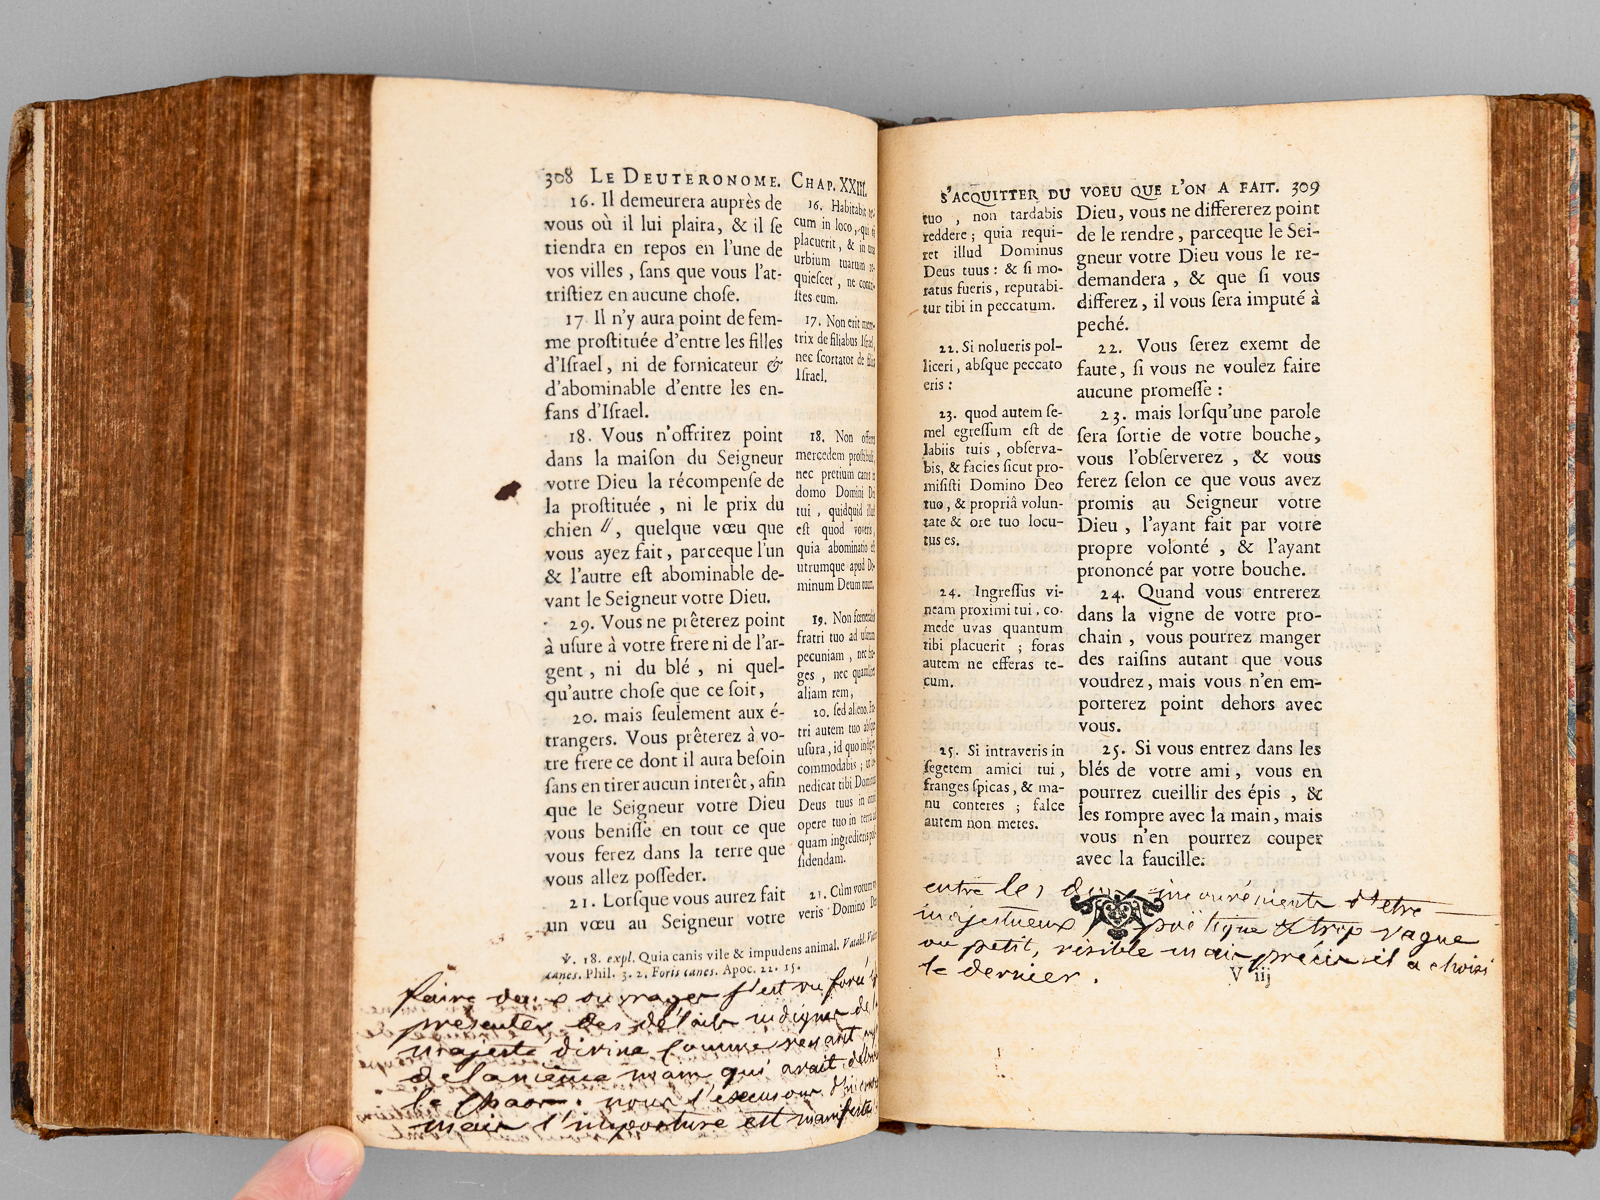 308 LE DEUTERONOME. CHAP. XXIII.
16. Il demeurera auprès de
vous où il lui plaira, & il ſe
tiendra en repos en l'une de
vos villes, ſans que vous l'at-
triſtiez en aucune choſe.
17 Il n'y aura point de fem-
me proſtituée d'entre les filles
d'Iſrael, ni de fornicateur &
d'abominable d'entre les en-
fans d'Iſrael.
18. Vous n'offrirez point
dans la maiſon du Seigneur
votre Dieu la récompenſe de
la proſtituée, ni le prix du
chien //, quelque vœu que
vous ayez fait, parceque l'un
& l'autre eſt abominable de-
vant le Seigneur votre Dieu.
29. Vous ne prêterez point
à uſure à votre frere ni de l'ar-
gent, ni du blé, ni quel-
qu'autre choſe que ce ſoit,
20. mais ſeulement aux é-
trangers. Vous prêterez à vo-
tre frere ce dont il aura beſoin
ſans en tirer aucun interêt, afin
que le Seigneur votre Dieu
vous beniſſe en tout ce que
vous ferez dans la terre que
vous allez poſſeder.
21. Lorſque vous aurez fait
un vœu au Seigneur votre
16. Habitabit
cum in loco, qui ei
placuerit, & in una
urbium tuarum re-
quieſcet, ne contri-
ſtes eum.
17. Non erit mere-
trix de filiabus Iſrael,
nec ſcortator de filiis
Iſrael.
18. Non offeres
mercedem proſtibuli,
nec pretium canis in
domo Domini Dei
tui, quidquid illud
eſt quod voveris,
quia abominatio eſt
utrumque apud Do-
minum Deum tuum.
19. Non fœnerabis
fratri tuo ad uſuram
pecuniam, nec fru-
ges, nec quamlibet
aliam rem,
20. ſed alieno. Fra-
tri autem tuo abſque
uſura, id quo indiget,
commodabis; ut be-
nedicat tibi Dominus
Deus tuus in omni
opere tuo in terra ad
quam ingredieris poſ-
ſidendam.
21. Cùm votum vo-
veris Domino Deo
℣. 18. expl. Quia canis vile & impudens animal. Vatabl. Videte
canes. Phil. 3. 2. Foris canes. Apoc. 22. 15.
faire deux ouvrages s'est vu forcé
presenter des détails indignes de la
majesté divine comme venant
de la même main qui avait
le chaos. nous l'excusons
mais l'imposture est manifeste
S'ACQUITTER DU VOEU QUE L'ON A FAIT. 309
tuo, non tardabis
reddere; quia requi-
ret illud Dominus
Deus tuus: & ſi mo-
ratus fueris, reputabi-
tur tibi in peccatum.
22. Si nolueris pol-
liceri, abſque peccato
eris:
23. quod autem ſe-
mel egreſſum eſt de
labiis tuis, obſerva-
bis, & facies ſicut pro-
miſiſti Domino Deo
tuo, & propriâ volun-
tate & ore tuo locu-
tus es.
24. Ingreſſus vi-
neam proximi tui, co-
mede uvas quantum
tibi placuerit; foras
autem ne efferas te-
cum.
25. Si intraveris in
ſegetem amici tui,
franges ſpicas, & ma-
nu conteres; falce
autem non metes.
Dieu, vous ne differerez point
de le rendre, parceque le Sei-
gneur votre Dieu vous le re-
demandera, & que ſi vous
differez, il vous ſera imputé à
peché.
22. Vous ſerez exemt de
faute, ſi vous ne voulez faire
aucune promeſſe:
23. mais lorſqu'une parole
ſera ſortie de votre bouche,
vous l'obſerverez, & vous
ferez ſelon ce que vous avez
promis au Seigneur votre
Dieu, l'ayant fait par votre
propre volonté, & l'ayant
prononcé par votre bouche.
24. Quand vous entrerez
dans la vigne de votre pro-
chain, vous pourrez manger
des raiſins autant que vous
voudrez, mais vous n'en em-
porterez point dehors avec
vous.
25. Si vous entrez dans les
blés de votre ami, vous en
pourrez cueillir des épis, &
les rompre avec la main, mais
vous n'en pourrez couper
avec la faucille.
entre les deux inconvénients d'etre
majestueux, poëtique & trop vague
ou petit, risible mais précis il a choisi
le dernier.
V iij